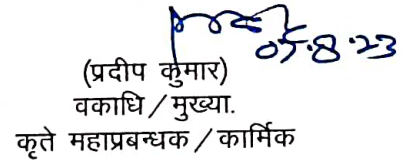 05.8.23
(प्रदीप कुमार)
वकाधि / मुख्या.
कृते महाप्रबन्धक / कार्मिक